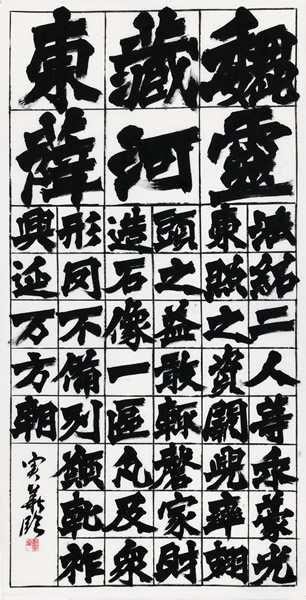 魏靈
藏河
東薛
法紹二人等求豪光
東照之資闕兜率翅
頭之益敢輒罄家財
造石像一區凡及衆
形罔不備列願乾祚
興延万方朝